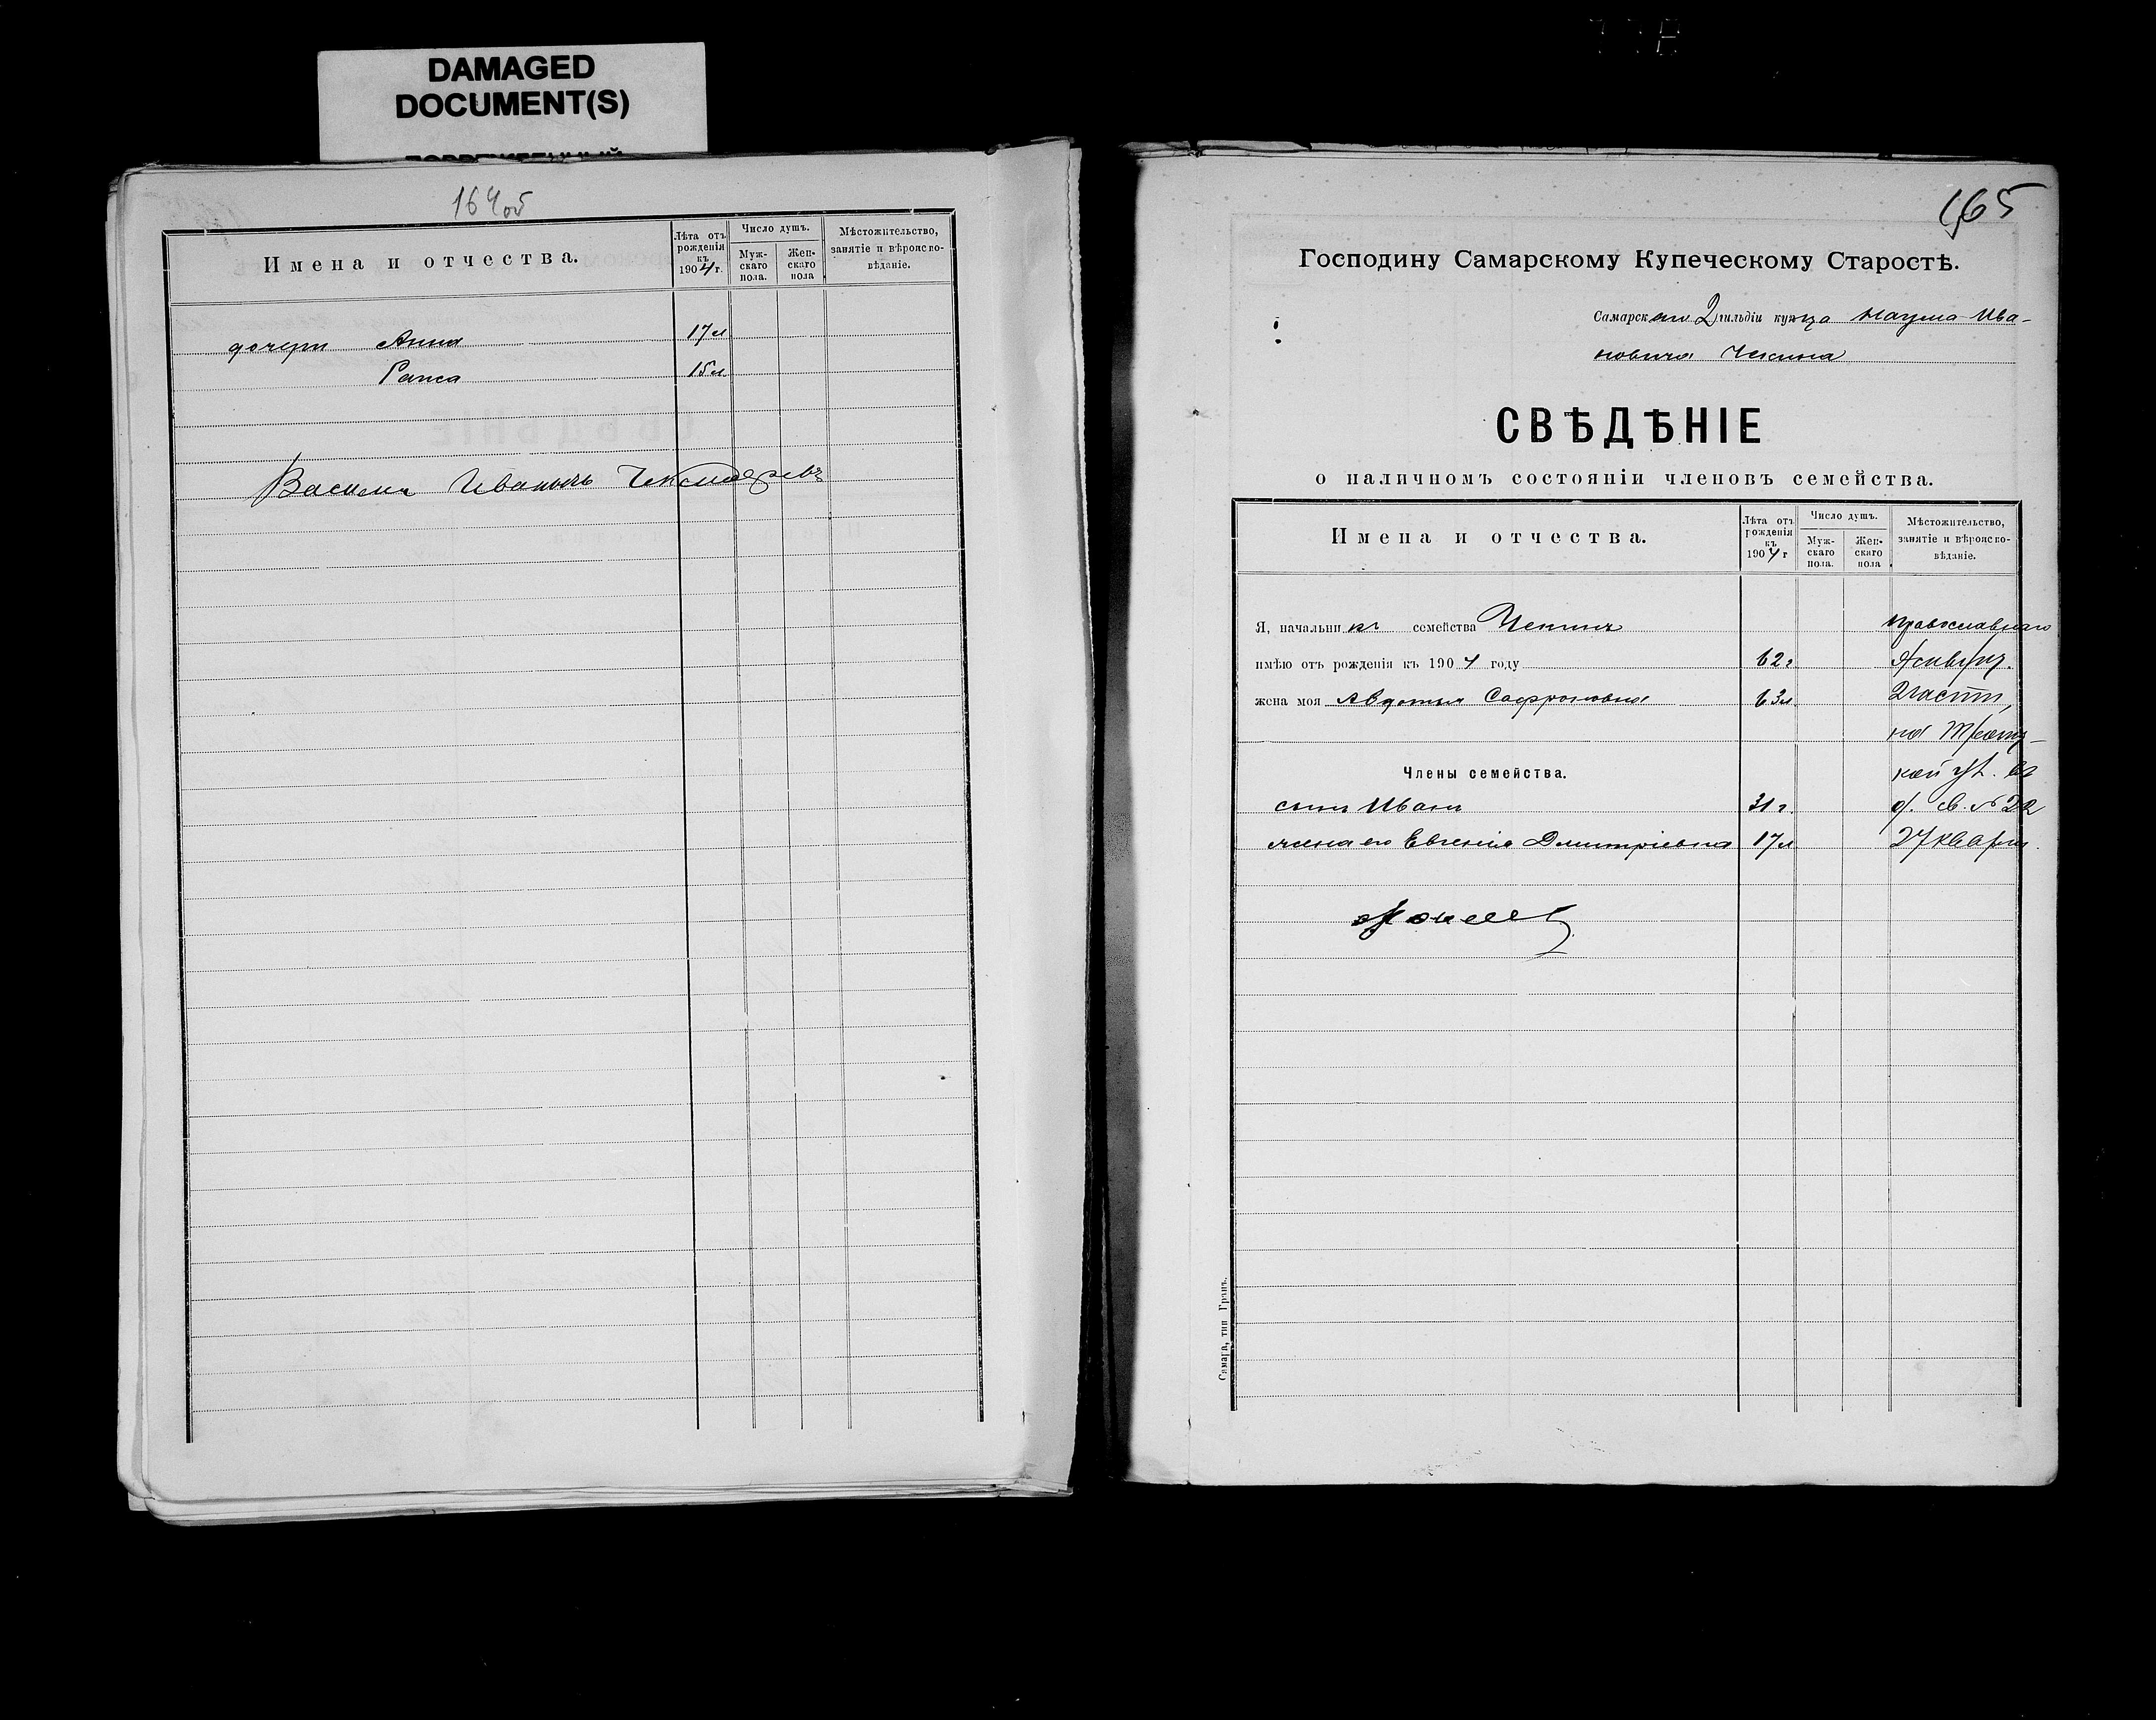 DAMAGED
DOCUMENT(S)
164об
Имена и отчества.
Лѣта отъ рожденія къ 1904 г.
Число душъ.
Мужскаго пола.
Женскаго пола
Мѣстожительство, занятіе и вѣроисповѣданіе.
дочери Анна 17 л
Раиса 15 л
Василий Иванычъ
165
Господину Самарскому Купеческому Старостѣ.
Самарскаго 2 гильдіи купца Наума Ива-
новича Чекина
СВѢДѢНІЕ
о наличномъ состояніи членовъ семейства.
Имена и отчества.
Лѣта отъ рожденія къ 1904 г
Число душъ.
Мужскаго пола.
Женскаго пола
Мѣстожительство, занятіе и вѣроисповѣданіе.
Я, начальникъ семейства Чекинъ православнаго
имѣю отъ рожденія къ 1904 году 62 г
жена моя Авдотья Софроновна 63 л. 2 части,
на Троиц-
Члены семейства. кой ул. въ
сынъ Иванъ 31 г. д. св. № 22
жена его Евгенія Дмитріевна 17 л 27 кварт.
Самара, тип. Гранъ.